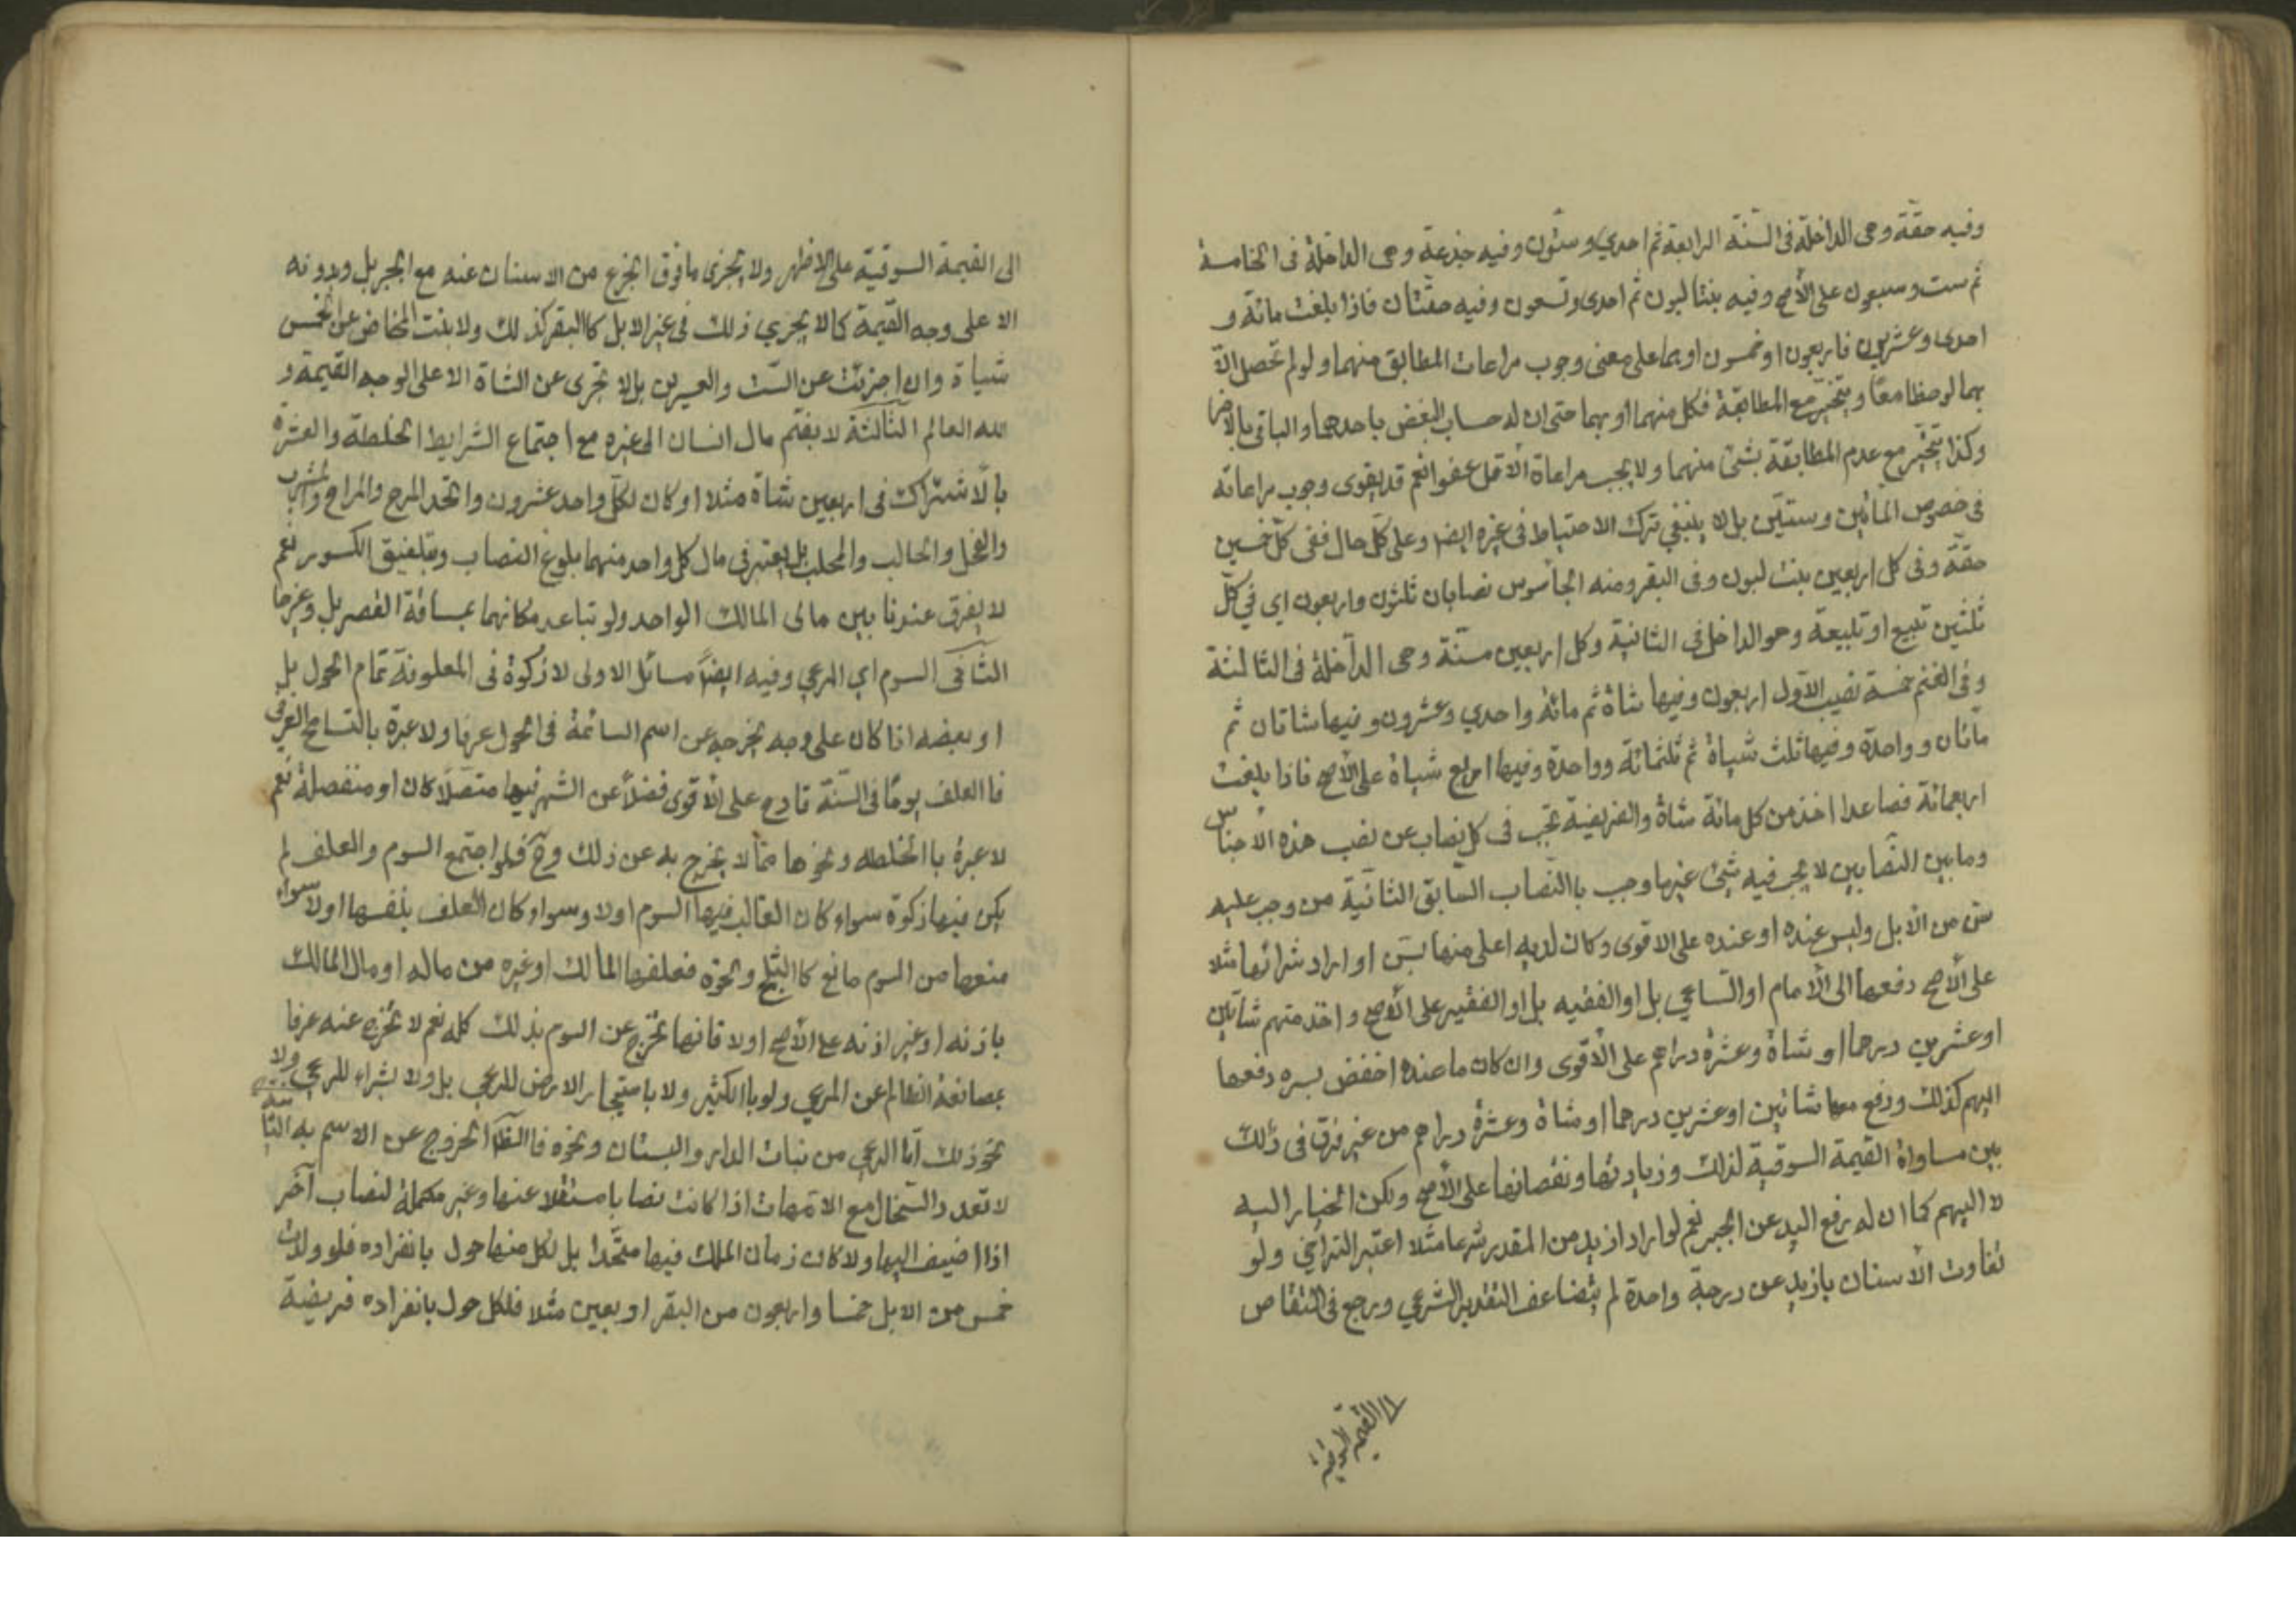 وفيه حقّة وهى الداخلة فى السّنة الرابعة ثم احدي وستّون وفيه جذعة وهى الداخلة فى الخامسة
ثم ست وسبعون على الأصح وفيه بنتا لبون ثم احدى وتسعون وفيه حقّتان فاذا بلغت مائة و
احدى وعشرين فاربعون او خمسون او بهما على معنى وجوب مراعات المطابق منهما ولو لم تحصل الّا
بهما لوحظا معًا ويتخيّر مع المطابقة فكل منهما او بهما حتى ان له حساب البعض باحدهما والباقى بالاخر
وكذا يتخيّر مع عدم المطابقة بشئ منهما ولا يجب مراعاة الأقل عفوا نعم قد يقوى وجوب مراعاته
فى خصوص المائتين وستيّن بل لا ينبغي ترك الاحتياط فى غيره ايضا وعلى كلّ حال ففى كلّ خمسين
حقّة وفى كل اربعين بنت لبون وفى البقر ومنه الجاموس نصابان ثلثون واربعون اي في كلّ
ثلثين تبيع او تبيعة وهو الداخل فى الثانية وكل اربعين مسنّة وهى الداخلة فى الثالثة
وفى الغنم خمسة نصب الآول اربعون وفيها شاة ثم مائة واحدي وعشرون وفيها شاتان ثم
مائتان وواحدة وفيها ثلث شياة ثم ثلثمائة وواحدة وفيها اربع شياة على الأصح فاذا بلغت
اربعمائة فصاعدا اخذ من كل مائة شاة والفريضة تجب فى كل نصاب من نصب هذه الأجناس
وما بين النّصابين لا يجب فيه شئ غير ما وجب باالنّصاب السّابق الثانية من وجب عليه
سن من الأبل وليس عنده او عنده على الاقوى وكان لديه اعلى منها بسّن او اراد شرائها مثلا
على الأصح دفعها الى الأمام او السّاعي بل او الفقيه بل او الفقير على الأصح واخذ منهم شاتين
او عشرين درهما او شاة وعشرة دراهم على الأقوى وان كان ما عنده اخفض بسره دفعها
اليهم كذلك ودفع معها شاتين او عشرين درهما او شاة وعشرة دراهم من غير فرق فى ذلك
بين مساواة القيمة السوقية لذلك وزيادتها ونقصانها على الأصح ولكن الخيار اليه
لا اليهم كما ان له رفع اليد عن الجبر نعم لو اراد ازيد من المقدر شرعا مثلا اعتبر التراضي ولو
تفاوت الأسنان بازيد من درجة واحدة لم يتضاعف التقدير الشرعي ورجع فى التقاص
الى القيمة السوقية
الى القيمة السوقية على الاظهر ولا يجزى ما فوق الجزع من الاسنان عنه مع الجبر بل وبدونه
الا على وجه القيمة كما لا يجزي ذلك فى غير الابل كا البقر كذلك ولا بنت المخاض عن الخمس
شياة وان اجزئت عن السّت والعسرين بل لا تجزى عن الشاة الا على الوجه القيمة و
الله العالم الثالثة لا يضم مال انسان الى غيره مع اجتماع الشرايط الخلطة والعشرة
بالأشتراك فى اربعين شاة مثلا او كان لكل واحد عشرون واتحد المرح والمراح والمشرب
والفحل والحالب والمحلب بل يعتبر فى مال كل واحد منهما بلوغ النصاب وبتلفيق الكسور نعم
لا يفرق عندنا بين مالى المالك الواحد ولو تباعد مكانهما بمسافة القصر بل وغيرها
الثانى السوم اي المرعي وفيه ايضًا مسائل الاولى لا زكوة فى المعلوفة تمام الحول بل
او بعضه اذا كان على وجه يخرجه عن اسم السائمة فى الحول عرفا ولا عبرة بالتسامح العرفى
فا العلف يومًا فى السّنة قادح على الأقوى فضلًا عن الشهر فيها متصلًا كان او منفصلة نعم
لا عبرة با الخلطه ونحوها ممّا لا يخرج به عن ذلك وحّ فلو اجتمع السوم والعلف لم
يكن فيها زكوة سواء كان الغالب فيها السوم اولا وسواء كان العلف بنفسها اولا سواء
منعها من السوم مانع كا الثلج ونحوه فعلفها المالك او غيره من ماله او مال المالك
باذنه او غير اذنه على الأصح اولا فانها تخرج عن السوم بذلك كله نعم لا تخرج عنه عرفا
بمصانعة الظالم عن المرعي ولو باالكثير ولا باستيجار الارض للمرعي بل ولا بشراء المرعي ولا
نحو ذلك امّا الرعي من نبات الدار والبستان ونحوه فا الظّا الخروج عن الاسم به الثانية
لا تعد والسّخال مع الامّهات اذا كانت نصابا مستقلا عنها وغير مكملة لنصاب آخر
اذا اضيف اليها ولا كان زمان الملك فيها متّحدا بل لكل منها حول بانفراده فلو ولدت
خمس من الابل خمسا واربعون من البقر اربعين مثلا فلكل حول بانفراده فريضة